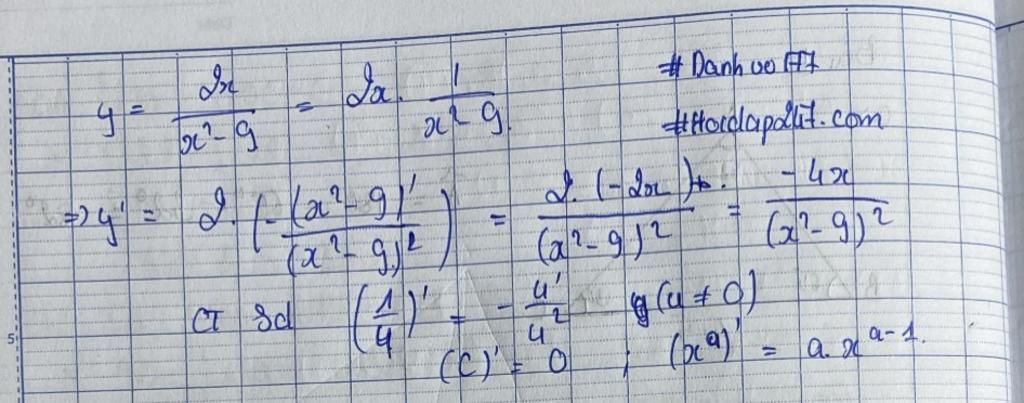 y = 2x / (x² - 9) = 2x. 1 / (x² - 9)
# Danh vo
#Hoidap247.com
=> y' = 2. (- (x² - 9)' / (x² - 9)²) = 2. (-2x) / (x² - 9)² = -4x / (x² - 9)²
CT Sd (1/u)' = - u' / u² (u ≠ 0)
(C)' = 0 ; (xᵃ)' = a. xᵃ⁻¹.
5